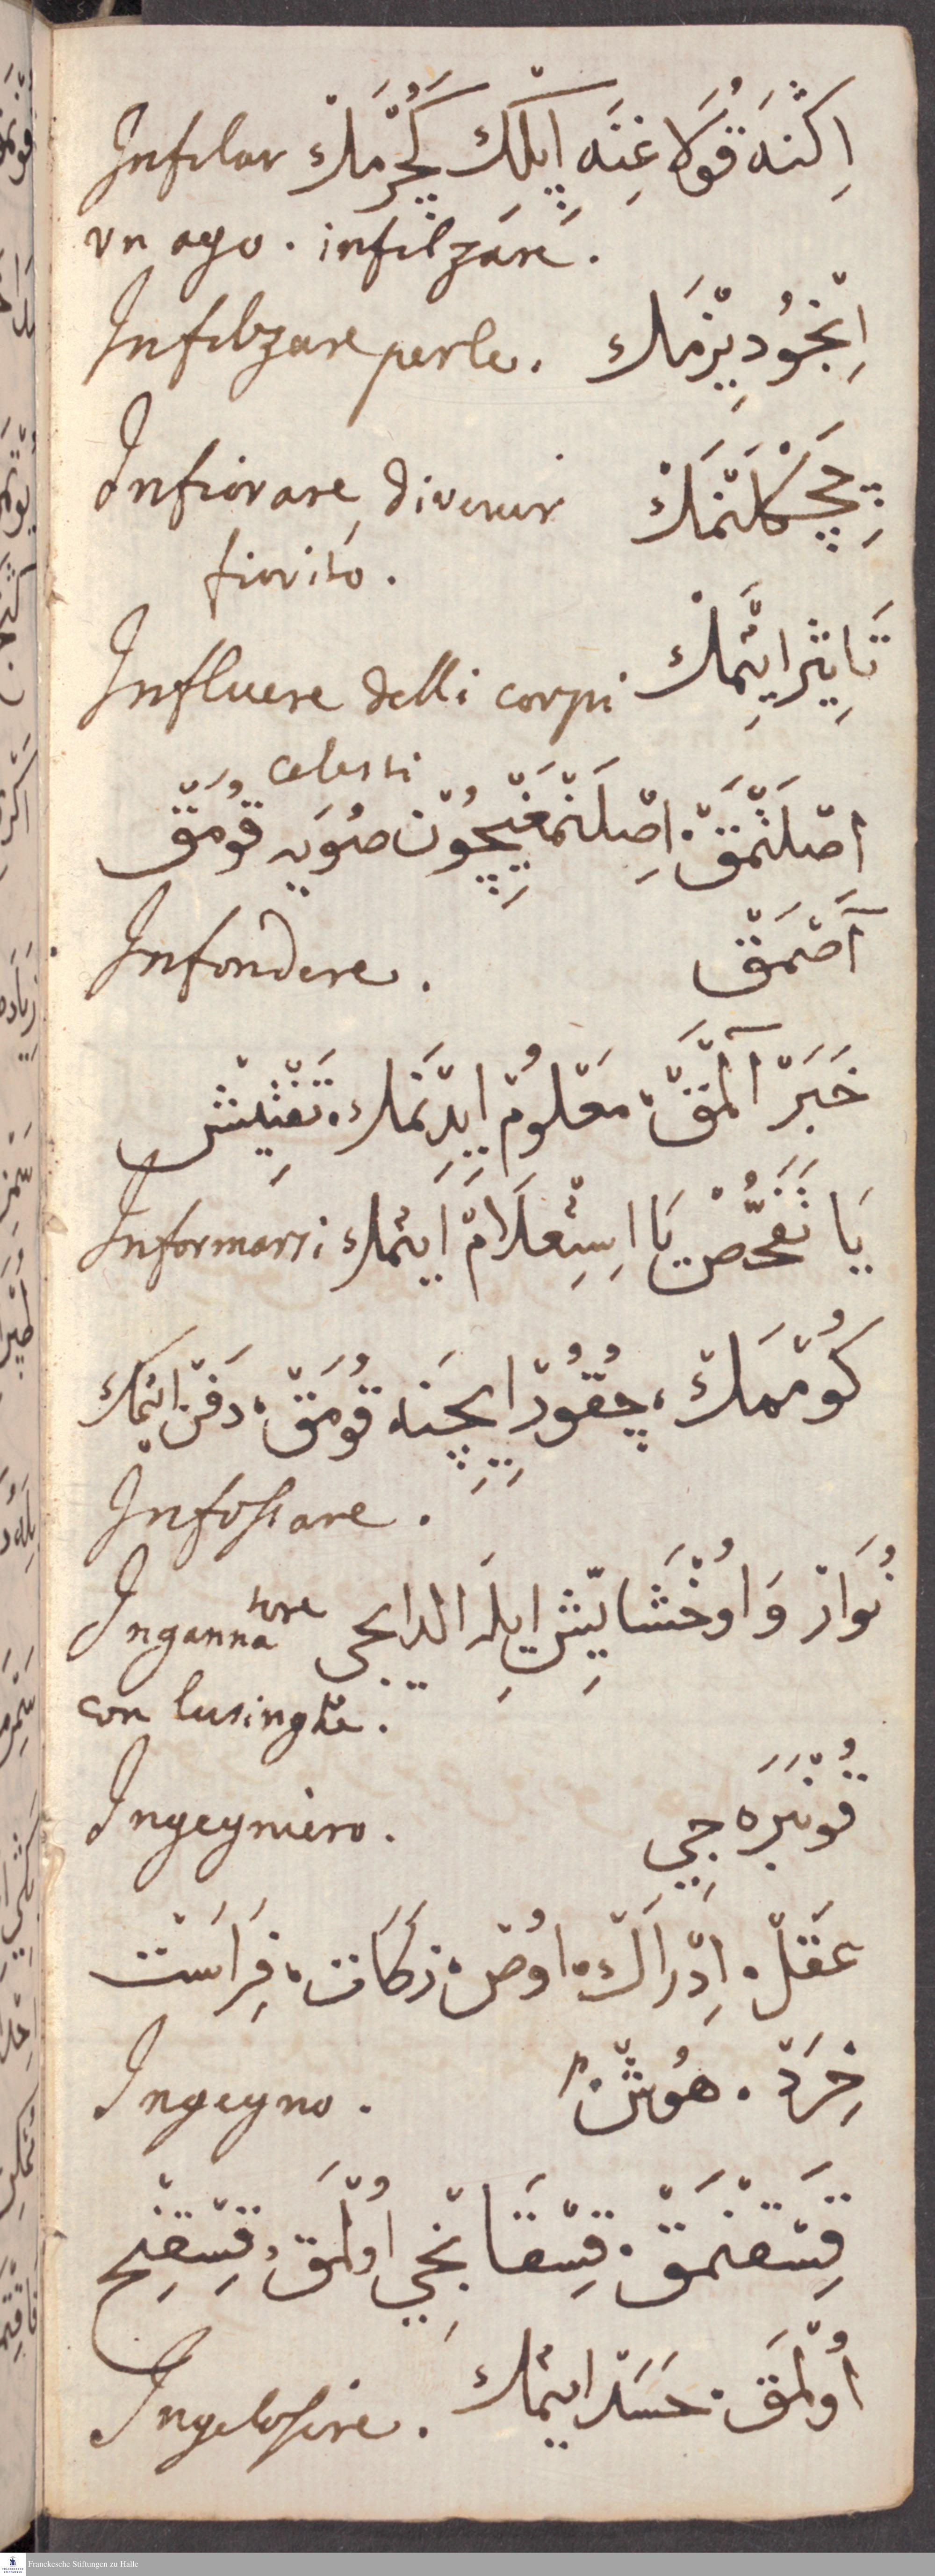 Infilar اِكْنَه قُولَاغِنَه اِيپْلِك كَچُرْمَكْ
vn ago. infilzare.
Infilzare perle. اِنْجُو دِيزْمَك
Infiorare, divenir چِچَكْلَنْمَكْ
fiorito.
Influere delli corpi تَاثِير ايتْمَكْ
celesti
اصْلَنْمَقْ. اِصْلَنْمَغِيچُونْ صُويَه قُومَقْ
Infondere. آصْمَقْ
خَبَرْ آلْمَقْ، مَعْلُومْ ايدِنْمَك، تَفْتِيشْ
Informarsi يَا تَفَحُّصْ يَا اِسْتِعْلَامْ ايتْمَك
كُومْمَكْ، چُقُورْ ايچِنَه قُومَقْ، دَفْن ايتْمَك
Infossare.
Ingannatore نُوَازْ وَ اوُخْشَايِشْ ايلَه الدايجى
con lusinghe.
Ingegniero. قُونْبَرَه جِي
عَقْلْ. اِدْرَاكْ. اوُصْ، زَكَاتْ، فِرَاسَتْ
Ingegno. خِرَدْ. هُوشْ
قِسْقَنْمَقْ. قِسْقَانْجِي اوُلْمَقْ، قِسْقِنْج
Ingelosire. اُولْمَقْ. حَسَد ايتْمَك
Franckesche Stiftungen zu Halle